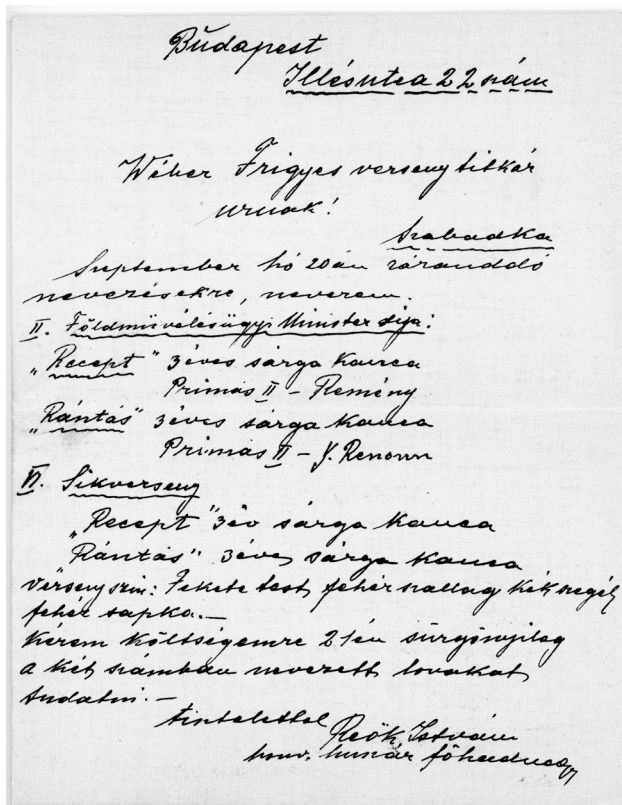 Budapest
Illésutca 22 szám
Wéber Frigyes versenytitkár
urnak!
Szabadka
Szeptember hó 20án zárandó
nevezésekre, nevezem.
II. Földmüvélésügyi Minister dija:
"Recept" 3éves sárga kanca
Primás II – Remény
"Rántás" 3éves sárga kanca
Primás II – Y. Renown
VI. Sikverseny
"Recept" 3év sárga kanca
Rántás" 3éves sárga kanca
Versenyszin: Fekete test fehér szallag kék szegély
fehér sapka.—
Kérem költségemre 21én sürgönyileg
a két számban nevezett lovakat
tudatni.—
tisztelettel
Reök István
honv. huszár főhadnagy